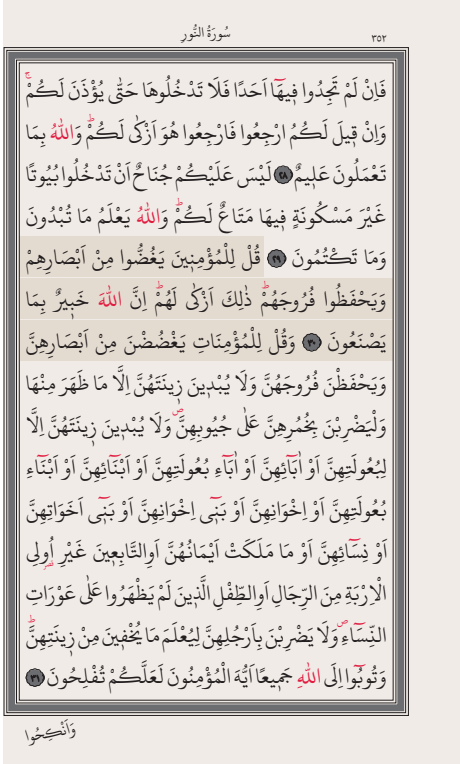 سُورَةُ النُّورِ
٣٥٢
فَاِنْ لَمْ تَجِدُوا فِيهَٓا اَحَدًا فَلَا تَدْخُلُوهَا حَتّٰى يُؤْذَنَ لَكُمْۚ
وَاِنْ قِيلَ لَكُمُ ارْجِعُوا فَارْجِعُوا هُوَ اَزْكٰى لَكُمْۜ وَاللّٰهُ بِمَا
تَعْمَلُونَ عَلِيمٌ ﴿٢٨﴾ لَيْسَ عَلَيْكُمْ جُنَاحٌ اَنْ تَدْخُلُوا بُيُوتًا
غَيْرَ مَسْكُونَةٍ فِيهَا مَتَاعٌ لَكُمْۜ وَاللّٰهُ يَعْلَمُ مَا تُبْدُونَ
وَمَا تَكْتُمُونَ ﴿٢٩﴾ قُلْ لِلْمُؤْمِنِينَ يَغُضُّوا مِنْ اَبْصَارِهِمْ
وَيَحْفَظُوا فُرُوجَهُمْۜ ذٰلِكَ اَزْكٰى لَهُمْۜ اِنَّ اللّٰهَ خَبِيرٌ بِمَا
يَصْنَعُونَ ﴿٣٠﴾ وَقُلْ لِلْمُؤْمِنَاتِ يَغْضُضْنَ مِنْ اَبْصَارِهِنَّ
وَيَحْفَظْنَ فُرُوجَهُنَّ وَلَا يُبْدِينَ زِينَتَهُنَّ اِلَّا مَا ظَهَرَ مِنْهَا
وَلْيَضْرِبْنَ بِخُمُرِهِنَّ عَلٰى جُيُوبِهِنَّۖ وَلَا يُبْدِينَ زِينَتَهُنَّ اِلَّا
لِبُعُولَتِهِنَّ اَوْ اٰبَٓائِهِنَّ اَوْ اٰبَٓاءِ بُعُولَتِهِنَّ اَوْ اَبْنَٓائِهِنَّ اَوْ اَبْنَٓاءِ
بُعُولَتِهِنَّ اَوْ اِخْوَانِهِنَّ اَوْ بَنِٓى اِخْوَانِهِنَّ اَوْ بَنِٓى اَخَوَاتِهِنَّ
اَوْ نِسَٓائِهِنَّ اَوْ مَا مَلَكَتْ اَيْمَانُهُنَّ اَوِ التَّابِعِينَ غَيْرِ اُو۬لِى
الْاِرْبَةِ مِنَ الرِّجَالِ اَوِ الطِّفْلِ الَّذِينَ لَمْ يَظْهَرُوا عَلٰى عَوْرَاتِ
النِّسَٓاءِۖ وَلَا يَضْرِبْنَ بِاَرْجُلِهِنَّ لِيُعْلَمَ مَا يُخْفِينَ مِنْ زِينَتِهِنَّۜ
وَتُوبُٓوا اِلَى اللّٰهِ جَمِيعًا اَيُّهَ الْمُؤْمِنُونَ لَعَلَّكُمْ تُفْلِحُونَ ﴿٣١﴾
وَاَنْكِحُوا